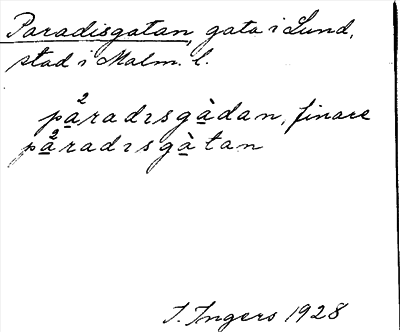 Paradisgatan, gata i Lund,
stad i Malm. l.
pa̲²radısgà̲dan, finare
pa̲²radısgà̲tan
I. Ingers 1928